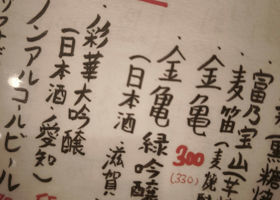 富乃宝山(芋
・麦笛(麦焼酎
・金亀
300
(330)
・金亀緑吟醸
(日本酒 滋賀
・彩華大吟醸
(日本酒 愛知)
ノンアルコールビール